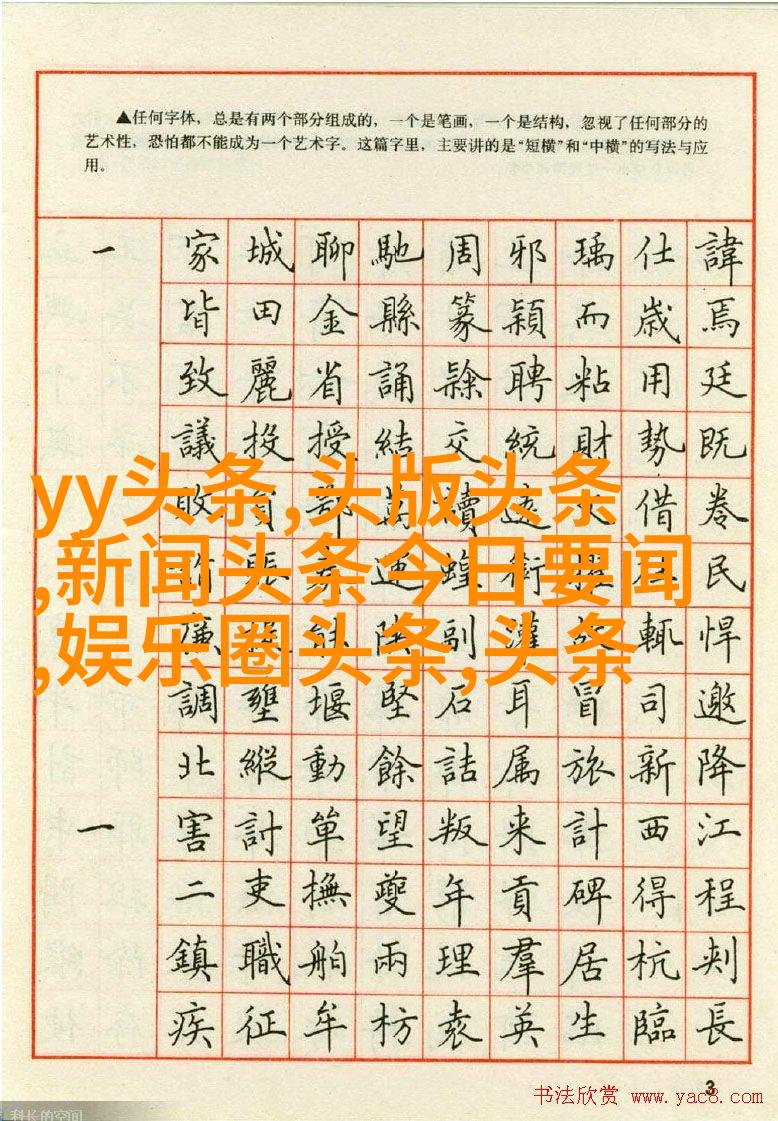 ▲任何字体，总是有两个部分组成的，一个是笔画，一个是结构，忽视了任何部分的
艺术性，恐怕都不能成为一个艺术字。这篇字里，主要讲的是“短横”和“中横”的写法与应
用。
一 家城聊馳周邪瑀仕諱
皆田金縣篆潁而歲焉
致麗省誦聘粘用廷
議投授結交統財勢既
敗貟部萬續遠火借卷
張運蝗衛民
廉能陝副漢輒悍
調壅堰堅石耳冒司邀
北縱動餘詰属旅新降
一 害討單望叛来計西江
二吏撫夔年貢碑得程
鎮職舶兩理羣居杭刺
疾征牟枋袁英生臨長
yy头条,头版头条
,新闻头条今日要闻
,娱乐圈头条,头条
3
书法欣赏 www.yac8.com
科长的空间